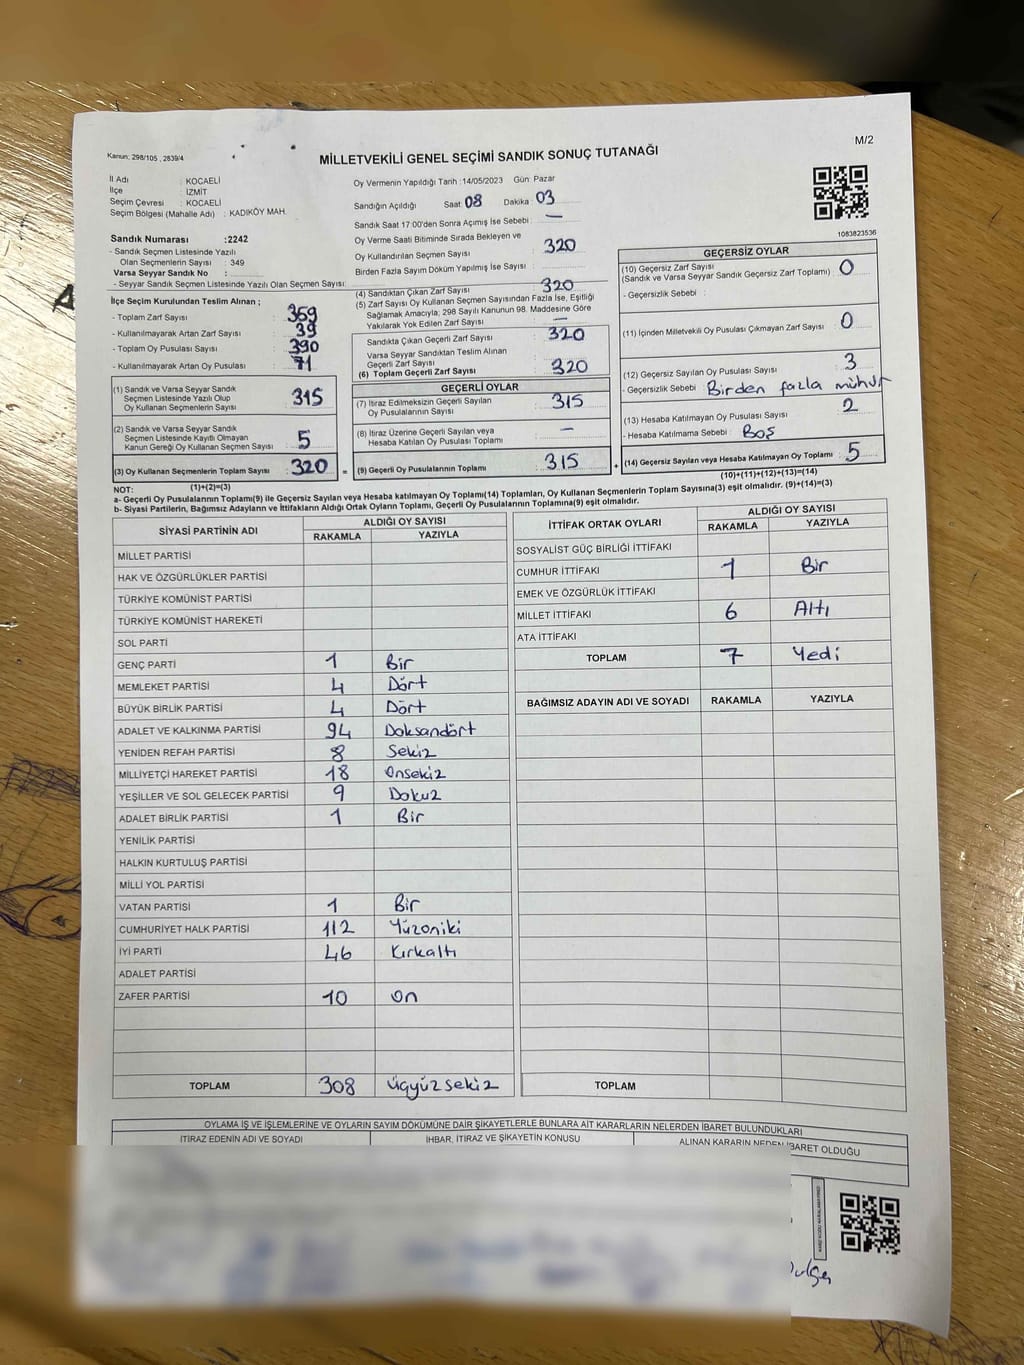 M/2
Kanun; 298/105 , 2839/4
MİLLETVEKİLİ GENEL SEÇİMİ SANDIK SONUÇ TUTANAĞI
İl Adı : KOCAELİ
İlçe : İZMİT
Seçim Çevresi : KOCAELİ
Seçim Bölgesi (Mahalle Adı) : KADIKÖY MAH.
Sandık Numarası :2242
- Sandık Seçmen Listesinde Yazılı
Olan Seçmenlerin Sayısı : 349
Varsa Seyyar Sandık No :
- Seyyar Seçmen Listesinde Yazılı Olan Seçmen Sayısı:
İlçe Seçim Kurulundan Teslim Alınan ;
- Toplam Zarf Sayısı : 359
- Kullanılmayarak Artan Zarf Sayısı : 39
- Toplam Oy Pusulası Sayısı : 390
- Kullanılmayarak Artan Oy Pusulası : 71
(1) Sandık ve Varsa Seyyar Sandık
Seçmen Listesinde Yazılı Olup
Oy Kullanan Seçmenlerin Sayısı : 315
(2) Sandık ve Varsa Seyyar Sandık
Seçmen Listesinde Kayıtlı Olmayan
Kanun Gereği Oy Kullanan Seçmen Sayısı : 5
(3) Oy Kullanan Seçmenlerin Toplam Sayısı : 320 =
(1)+(2)=(3)
Oy Vermenin Yapıldığı Tarih :14/05/2023 Gün: Pazar
Sandığın Açıldığı Saat 08 Dakika 03
Sandık Saat 17:00'den Sonra Açılmış İse Sebebi : —
Oy Verme Saati Bitiminde Sırada Bekleyen ve
Oy Kullandırılan Seçmen Sayısı : 320
Birden Fazla Sayım Döküm Yapılmış İse Sayısı :
(4) Sandıktan Çıkan Zarf Sayısı : 320
(5) Zarf Sayısı Oy Kullanan Seçmen Sayısından Fazla İse, Eşitliği
Sağlamak Amacıyla; 298 Sayılı Kanunun 98. Maddesine Göre
Yakılarak Yok Edilen Zarf Sayısı : —
Sandıkta Çıkan Geçerli Zarf Sayısı : 320
Varsa Seyyar Sandıktan Teslim Alınan
Geçerli Zarf Sayısı :
(6) Toplam Geçerli Zarf Sayısı : 320
GEÇERLİ OYLAR
(7) İtiraz Edilmeksizin Geçerli Sayılan
Oy Pusulalarının Sayısı : 315
(8) İtiraz Üzerine Geçerli Sayılan veya
Hesaba Katılan Oy Pusulası Toplamı : —
(9) Geçerli Oy Pusulalarının Toplamı : 315 +
1083823536
GEÇERSİZ OYLAR
(10) Geçersiz Zarf Sayısı
(Sandık ve Varsa Seyyar Sandık Geçersiz Zarf Toplamı) : 0
- Geçersizlik Sebebi :
(11) İçinden Milletvekili Oy Pusulası Çıkmayan Zarf Sayısı : 0
(12) Geçersiz Sayılan Oy Pusulası Sayısı : 3
- Geçersizlik Sebebi : Birden fazla mühür
(13) Hesaba Katılmayan Oy Pusulası Sayısı : 2
- Hesaba Katılmama Sebebi : Boş
(14) Geçersiz Sayılan veya Hesaba Katılmayan Oy Toplamı : 5
(10)+(11)+(12)+(13)=(14)
NOT:
a- Geçerli Oy Pusulalarının Toplamı(9) ile Geçersiz Sayılan veya Hesaba katılmayan Oy Toplamı(14) Toplamları, Oy Kullanan Seçmenlerin Toplam Sayısına(3) eşit olmalıdır. (9)+(14)=(3)
b- Siyasi Partilerin, Bağımsız Adayların ve İttifakların Aldığı Ortak Oyların Toplamı, Geçerli Oy Pusulalarının Toplamına(9) eşit olmalıdır.
SİYASİ PARTİNİN ADI ALDIĞI OY SAYISI
RAKAMLA YAZIYLA
MİLLET PARTİSİ
HAK VE ÖZGÜRLÜKLER PARTİSİ
TÜRKİYE KOMÜNİST PARTİSİ
TÜRKİYE KOMÜNİST HAREKETİ
SOL PARTİ
GENÇ PARTİ 1 Bir
MEMLEKET PARTİSİ 4 Dört
BÜYÜK BİRLİK PARTİSİ 4 Dört
ADALET VE KALKINMA PARTİSİ 94 Doksandört
YENİDEN REFAH PARTİSİ 8 Sekiz
MİLLİYETÇİ HAREKET PARTİSİ 18 Onsekiz
YEŞİLLER VE SOL GELECEK PARTİSİ 9 Dokuz
ADALET BİRLİK PARTİSİ 1 Bir
YENİLİK PARTİSİ
HALKIN KURTULUŞ PARTİSİ
MİLLİ YOL PARTİSİ
VATAN PARTİSİ 1 Bir
CUMHURİYET HALK PARTİSİ 112 Yüzoniki
İYİ PARTİ 46 Kırkaltı
ADALET PARTİSİ
ZAFER PARTİSİ 10 On
TOPLAM 308 Üçyüzsekiz
İTTİFAK ORTAK OYLARI ALDIĞI OY SAYISI
RAKAMLA YAZIYLA
SOSYALİST GÜÇ BİRLİĞİ İTTİFAKI
CUMHUR İTTİFAKI 1 Bir
EMEK VE ÖZGÜRLÜK İTTİFAKI
MİLLET İTTİFAKI 6 Altı
ATA İTTİFAKI
TOPLAM 7 Yedi
BAĞIMSIZ ADAYIN ADI VE SOYADI RAKAMLA YAZIYLA
TOPLAM
OYLAMA İŞ VE İŞLEMLERİNE VE OYLARIN SAYIM DÖKÜMÜNE DAİR ŞİKAYETLERLE BUNLARA AİT KARARLARIN NELERDEN İBARET BULUNDUKLARI
İTİRAZ EDENİN ADI VE SOYADI İHBAR, İTİRAZ VE ŞİKAYETİN KONUSU ALINAN KARARIN NEDEN İBARET OLDUĞU